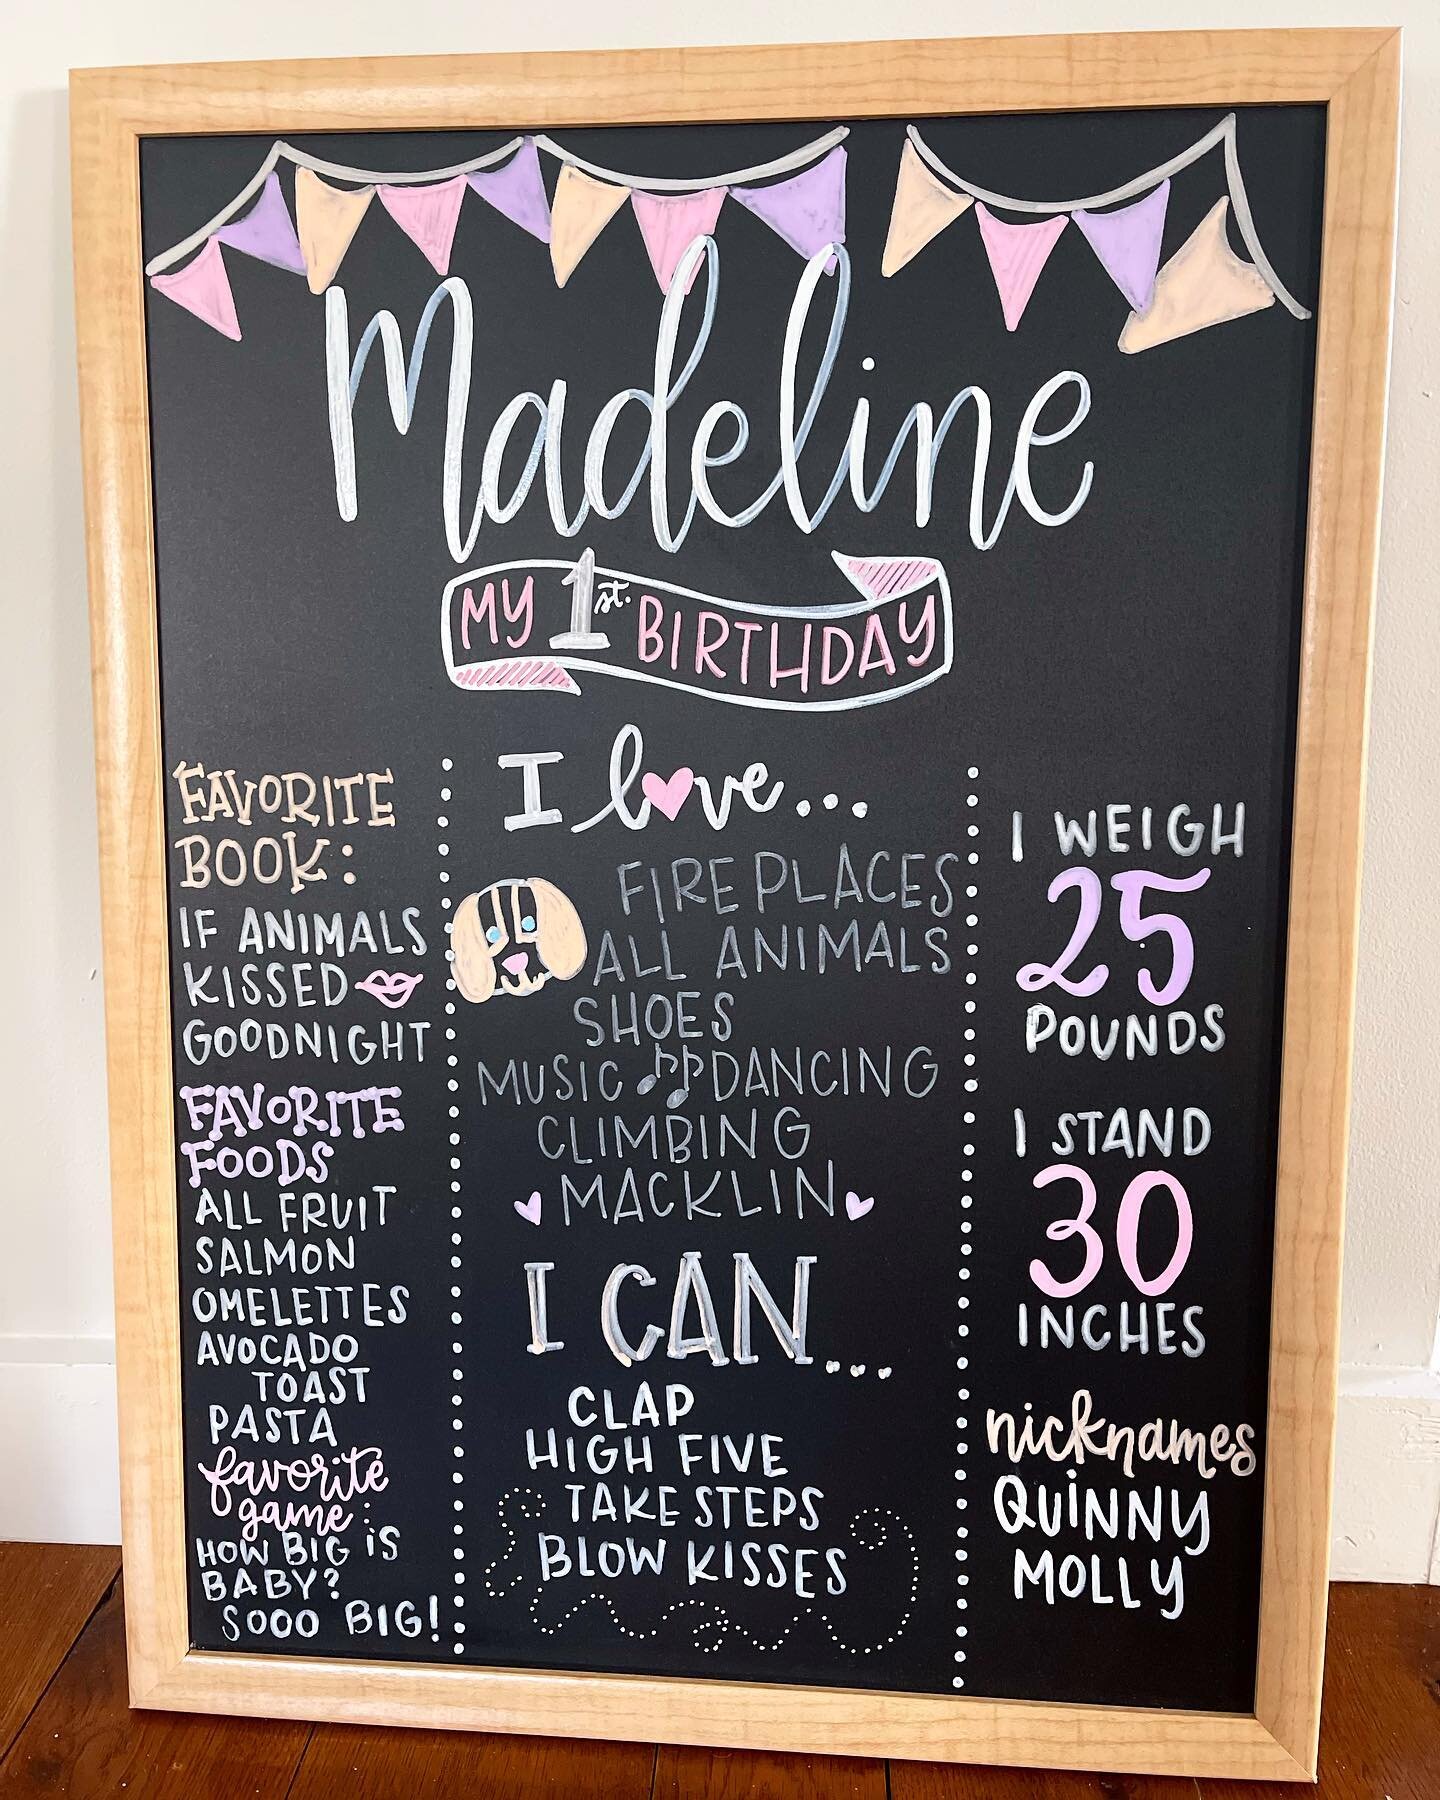 Madeline
MY 1st. BIRTHDAY
FAVORITE
BOOK:
IF ANIMALS
KISSED
GOODNIGHT
FAVORITE
FOODS
ALL FRUIT
SALMON
OMELETTES
AVOCADO
TOAST
PASTA
favorite
game:
HOW BIG IS
BABY?
SOOO BIG!
I love...
FIREPLACES
ALL ANIMALS
SHOES
MUSIC DANCING
CLIMBING
MACKLIN
I CAN...
CLAP
HIGH FIVE
TAKE STEPS
BLOW KISSES
I WEIGH
25
POUNDS
I STAND
30
INCHES
nicknames
QUINNY
MOLLY